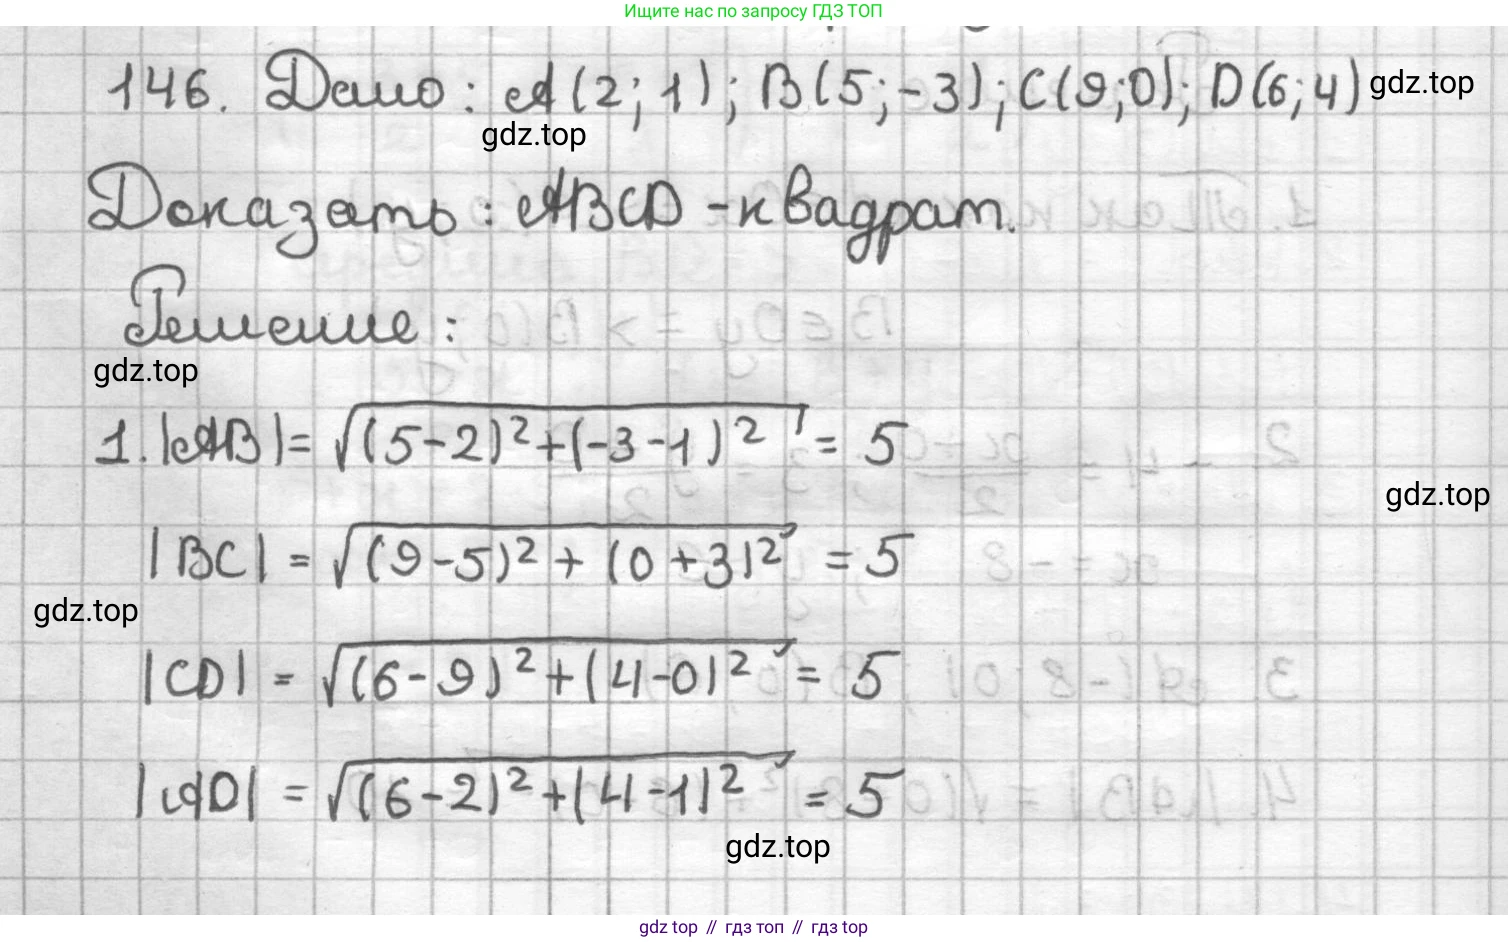 Ищите нас по запросу ГДЗ ТОП
146. Дано: A(2; 1); B(5; -3); C(9; 0); D(6; 4)
gdz.top
gdz.top
Доказать: ABCD - квадрат.
Решение:
gdz.top
1. |AB| = √((5-2)²+(-3-1)²) = 5
gdz.top
|BC| = √((9-5)² + (0+3)²) = 5
gdz.top
|CD| = √((6-9)²+(4-0)²) = 5
|AD| = √((6-2)²+(4-1)²) = 5
gdz.top
gdz top // гдз топ // гдз top